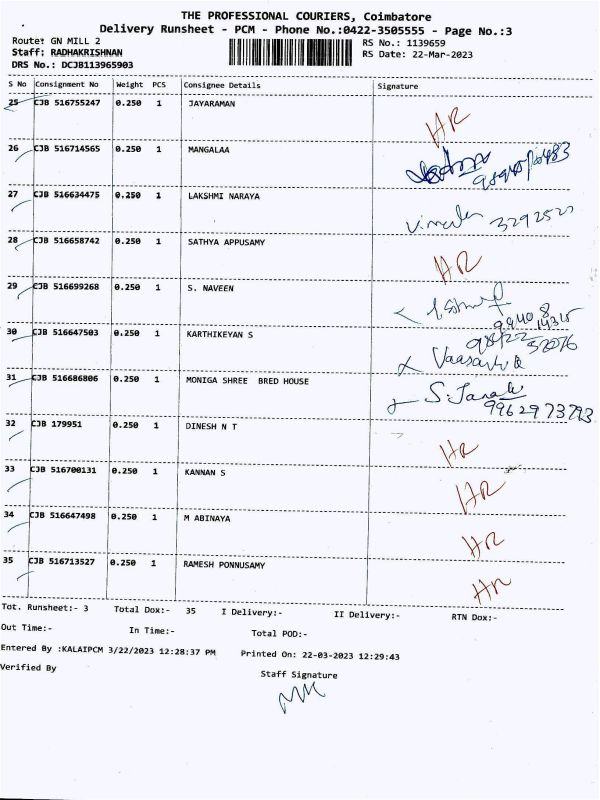 THE PROFESSIONAL COURIERS, Coimbatore
Delivery Runsheet - PCM - Phone No.:0422-3505555 - Page No.:3
Route: GN MILL 2
RS No.: 1139659
Staff: RADHAKRISHNAN
RS Date: 22-Mar-2023
DRS No.: DCJB113965903
S No Consignment No Weight PCS Consignee Details Signature
25 CJB 516755247 0.250 1 JAYARAMAN HR
26 CJB 516714565 0.250 1 MANGALAA
27 CJB 516634475 0.250 1 LAKSHMI NARAYA
28 CJB 516658742 0.250 1 SATHYA APPUSAMY HR
29 CJB 516699268 0.250 1 S. NAVEEN
30 CJB 516647503 0.250 1 KARTHIKEYAN S
31 CJB 516686806 0.250 1 MONIGA SHREE BRED HOUSE
32 CJB 179951 0.250 1 DINESH N T HR
33 CJB 516700131 0.250 1 KANNAN S HR
34 CJB 516647498 0.250 1 M ABINAYA HR
35 CJB 516713527 0.250 1 RAMESH PONNUSAMY HR
Tot. Runsheet:- 3 Total Dox:- 35 I Delivery:- II Delivery:- RTN Dox:-
Out Time:- In Time:- Total POD:-
Entered By :KALAIPCM 3/22/2023 12:28:37 PM Printed On: 22-03-2023 12:29:43
Verified By
Staff Signature